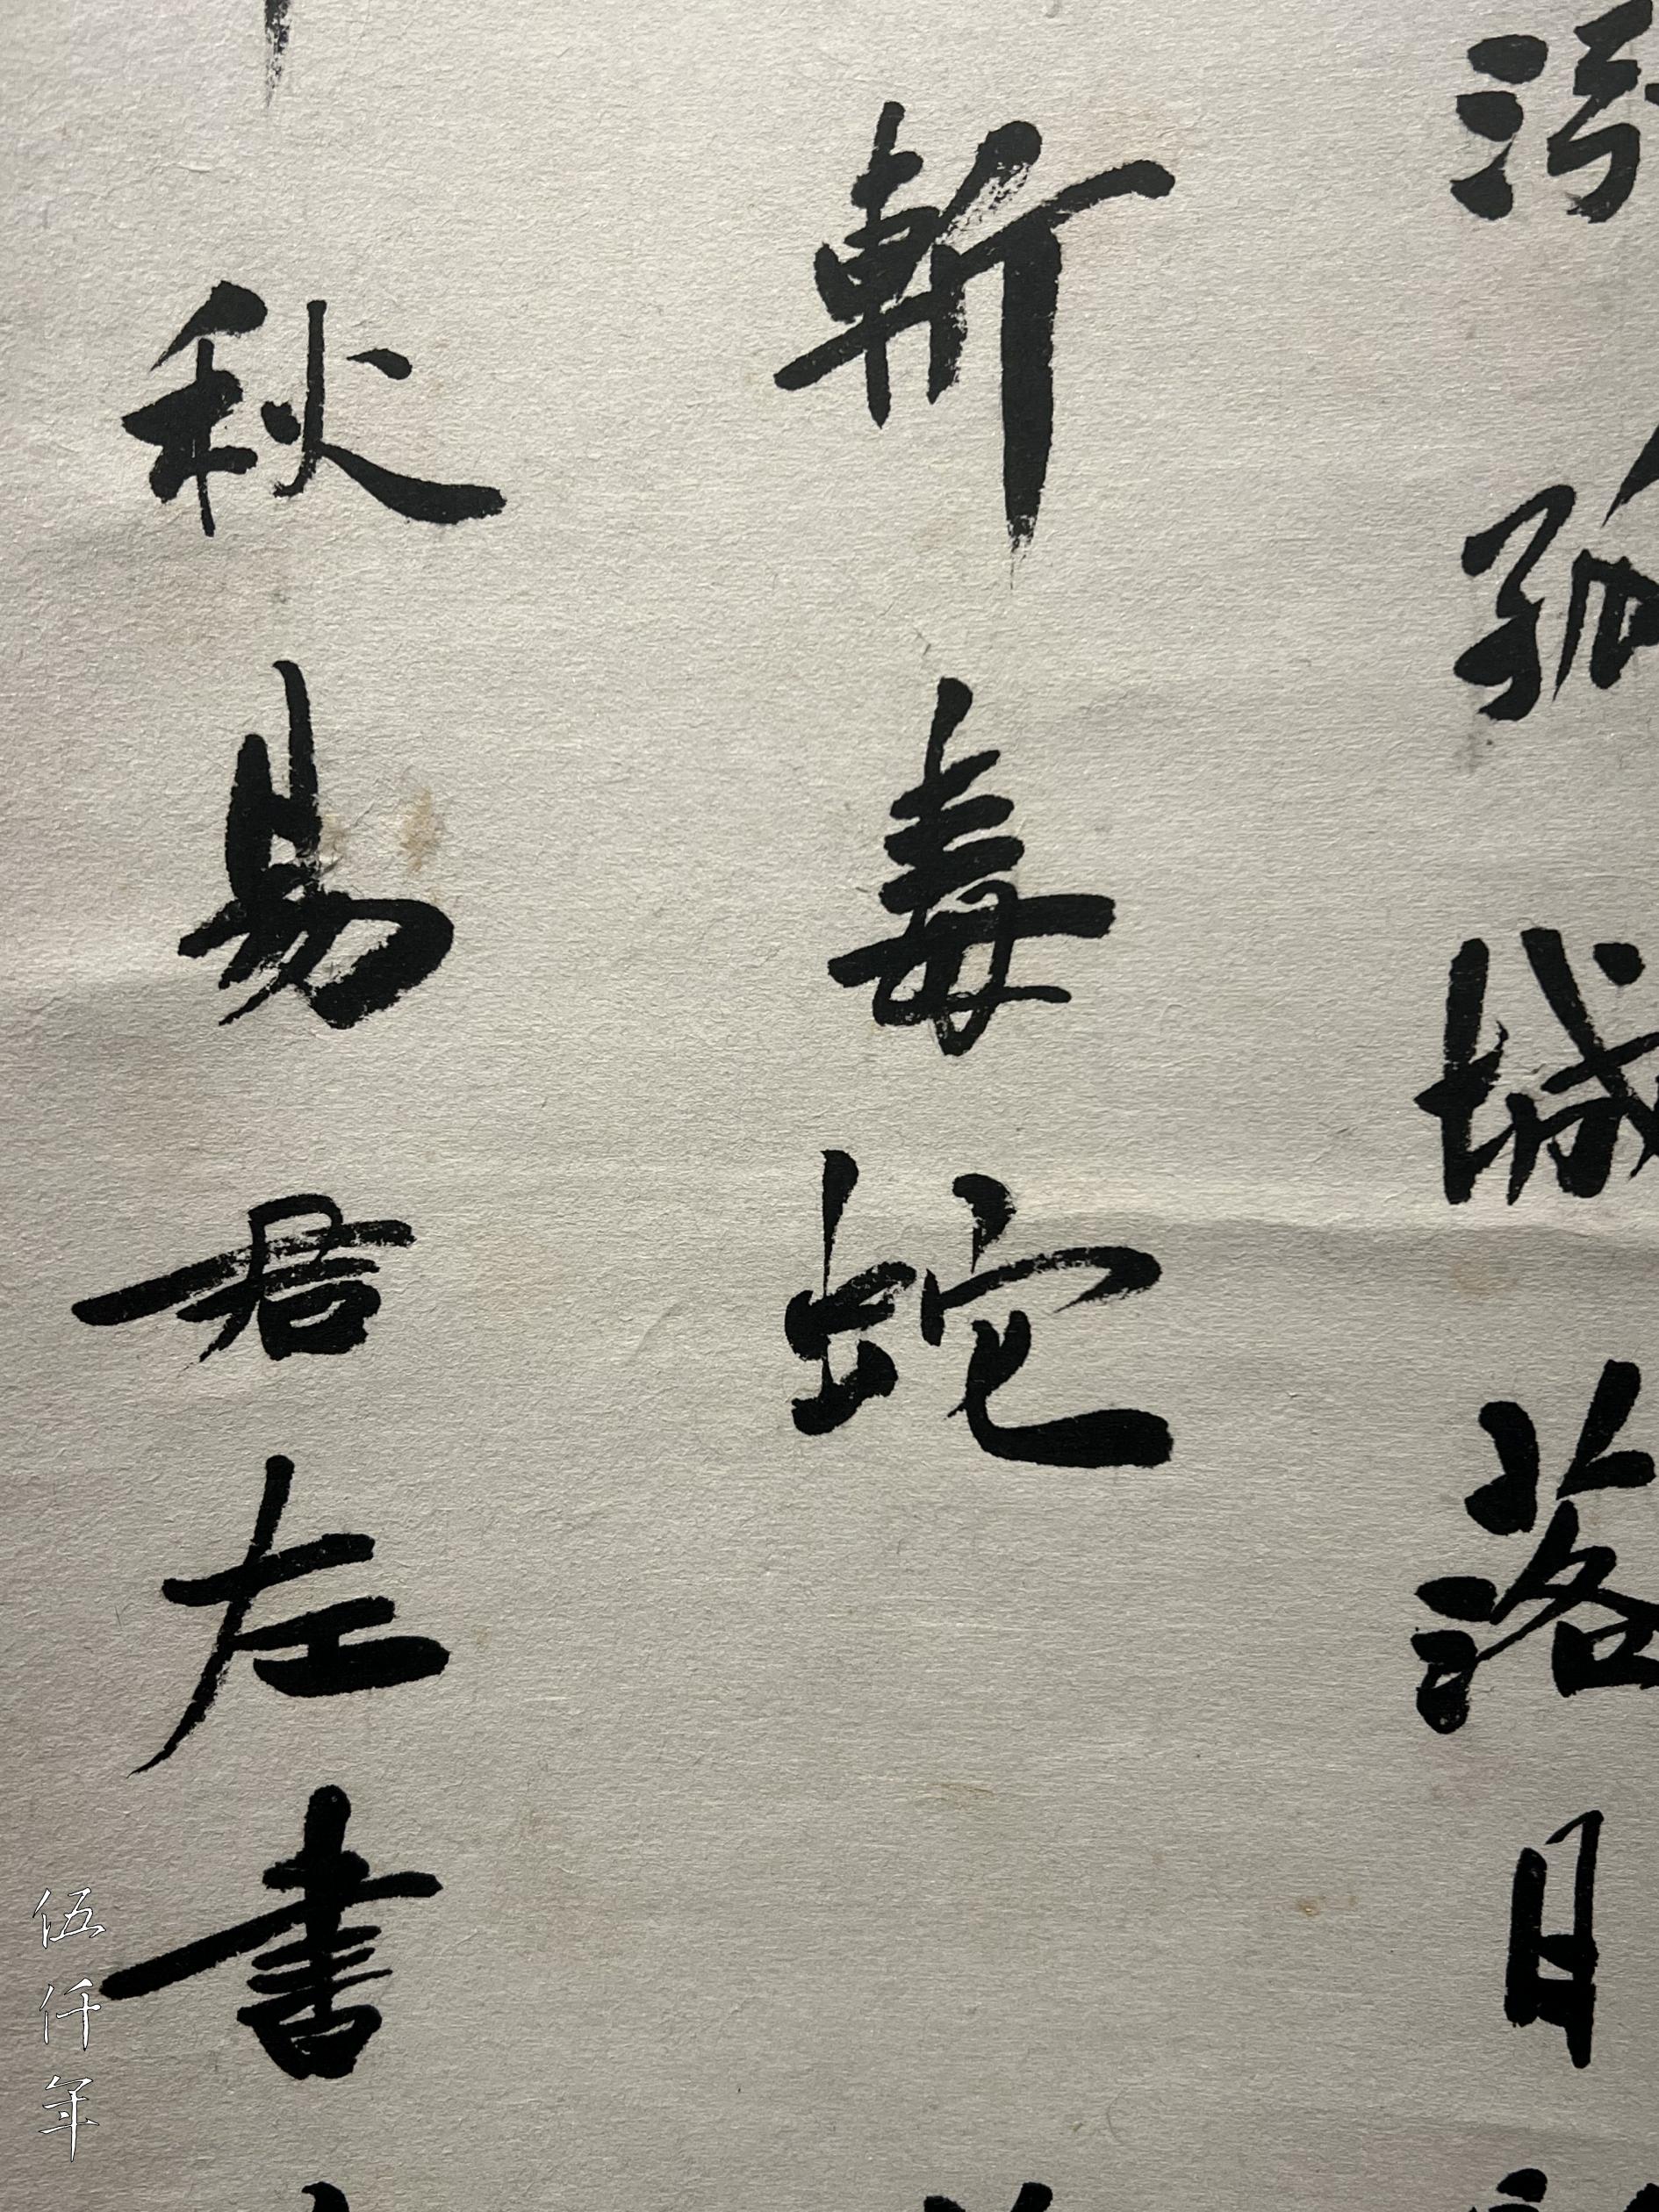 孤城落日
斬毒蛇
秋易君左書
伍仟年